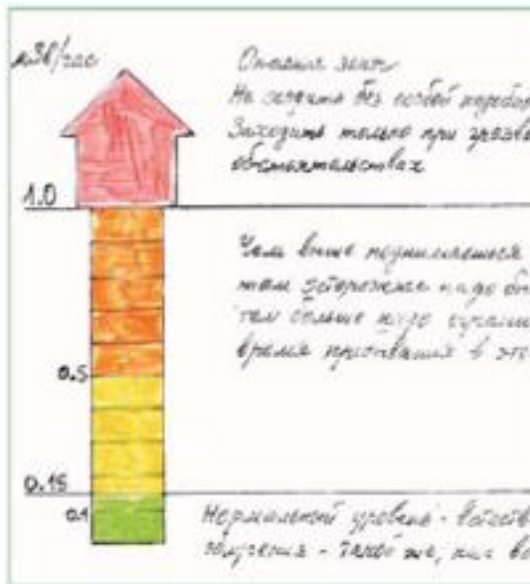 мЗв/час
Опасная зона
Не сходить без особой надобн
Заходить только при чрезвы
обстоятельствах
1.0
Чем выше поднимаешься
тем осторожнее надо бы
тем больше надо ограни
время в эт
0.5
0.15
0.1
Нормальный уровень - естеств
излучения - такой же, как вс